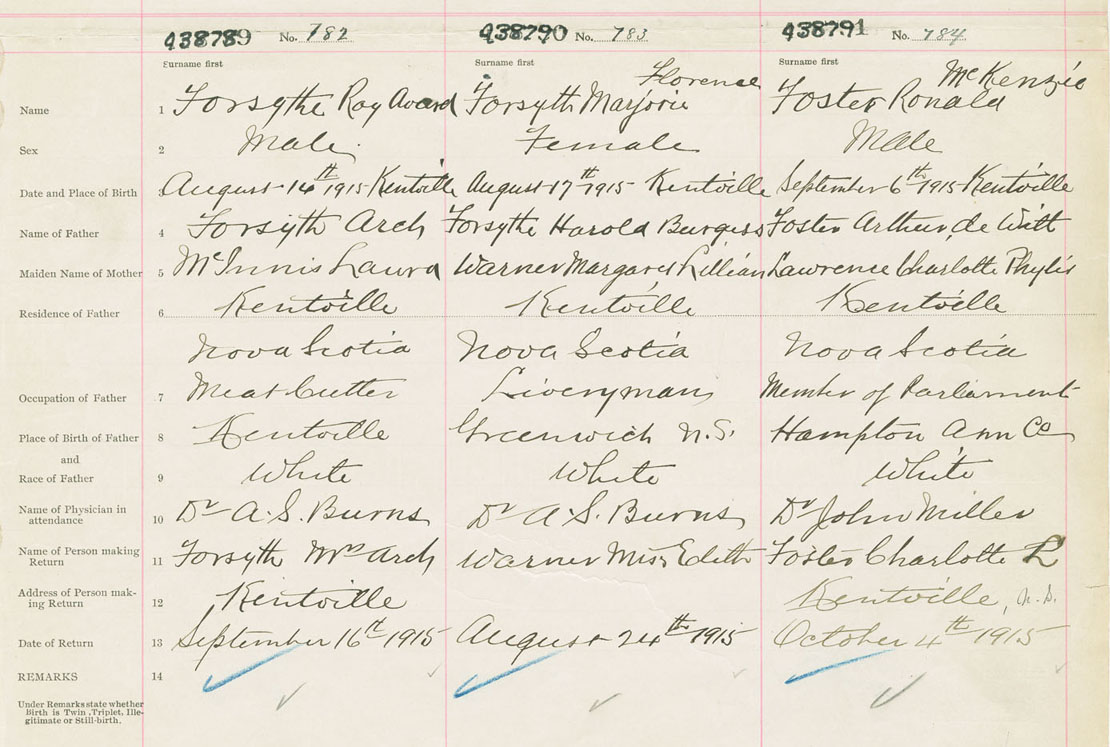 938789 No. 782 938790 No. 783 938791 No. 784
Surname first Surname first Surname first
Florence McKenzie
Name 1 Forsythe Ray Avard Forsyth Marjorie Foster Ronald
Sex 2 Male Female Male
Date and Place of Birth 3 August 14th 1915 Kentville August 17th 1915 Kentville September 6th 1915 Kentville
Name of Father 4 Forsyth Arch Forsythe Harold Burgess Foster Arthur de Witt
Maiden Name of Mother 5 McInnis Laura Warner Margaret Lillian Lawrence Charlotte Phylis
Residence of Father 6 Kentville Kentville Kentville
Nova Scotia Nova Scotia Nova Scotia
Occupation of Father 7 Meat Cutter Liveryman Member of Parliament
Place of Birth of Father 8 Kentville Greenwich N.S. Hampton Ann Co
and
Race of Father 9 White White White
Name of Physician in
attendance 10 Dr A. S. Burns Dr A. S. Burns Dr John Miller
Name of Person making
Return 11 Forsyth Mrs Arch Warner Miss Edith Foster Charlotte L
Address of Person mak-
ing Return 12 Kentville Kentville, N.S.
Date of Return 13 September 16th 1915 August 24th 1915 October 4th 1915
REMARKS 14
Under Remarks state whether
Birth is Twin, Triplet, Ille-
gitimate or Still-birth.